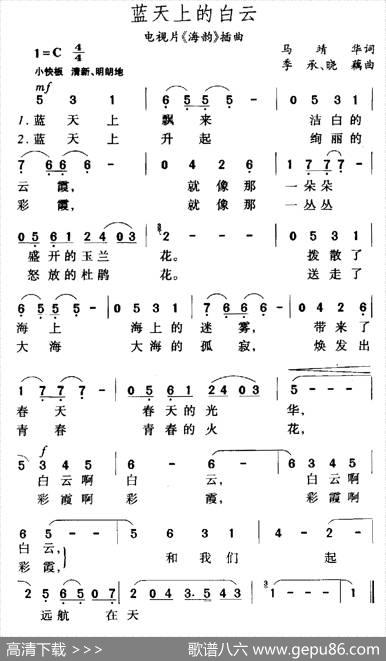 蓝天上的白云
电视片《海韵》插曲
1=C 4/4
马靖华词
小快板 清新、明朗地
季承、晓藕曲
mf
5 3 1 6 5 5 5 0 5 3 1
1. 蓝天上 飘来 洁白的
2. 蓝天上 升起 绚丽的
7 6 6 6 0 4 2 6 1 7 7 7
云霞, 就像那 一朵朵
彩霞, 就像那 一丛丛
0 5 6 1 2 4 0 3 2 - - - 0 5 3 1
盛开的玉兰 花。 拨散了
怒放的杜鹃 花。 送走了
6 5 5 5 0 5 3 1 7 6 6 6 0 4 2 6
海上 海上的迷雾, 带来了
大海 大海的孤寂, 焕发出
1 7 7 7 0 5 6 1 2 4 0 3 5 - - -
春天 春天的光 华,
青春 青春的火 花,
f
5 3 4 5 6 5 - 5 6 3 4 5
白云啊 白云, 白云啊
彩霞啊 彩霞, 彩霞啊
6 5 - - 5 6 3 1 4 - 2 -
白云,
彩霞, 和我们 起
5 5 5 2 0 4 3 . 5 4 3 1 - - - 1 0 0 0
远航 在天
高清下载 > >
歌谱八六 www.gepu86.com